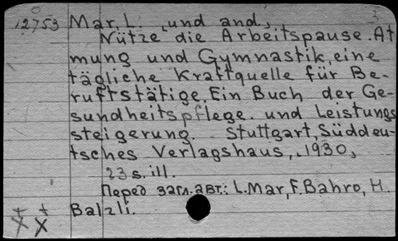 12753 Mar, L. und and,
Nütze die Arbeitspause. At
mung und Gymnastik, eine
tägliche Kraftquelle für Be-
rufstätige. Ein Buch der Ge-
sundheitspflege und Leistungs
steigerung. Stuttgart, Süddeu-
tsches Verlagshaus, 1930,
23 s. ill.
Перед загл. авт.: L. Mar, F. Bahro, H.
Balzli.